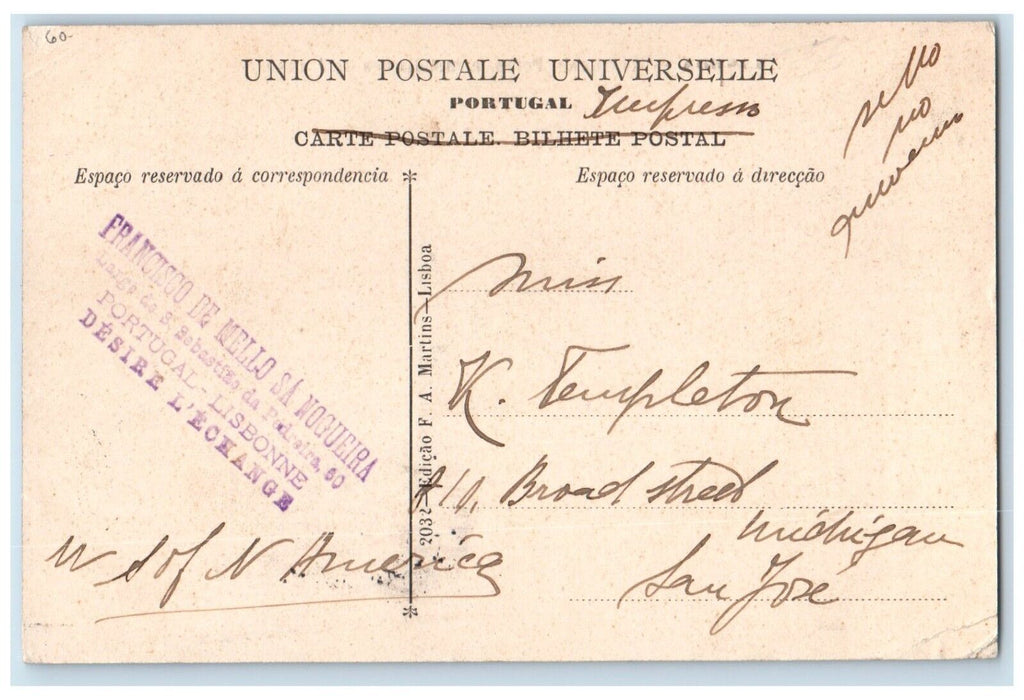 60-
UNION POSTALE UNIVERSELLE
PORTUGAL Impresso
CARTE POSTALE. BILHETE POSTAL
sello
no
Espaço reservado á correspondencia
Espaço reservado á direcção
FRANCISCO DE MELLO SÁ NOGUEIRA
Largo de S. Sebastião da Pedreira, 60
PORTUGAL-LISBONNE
DÉSIRE L'ÉCHANGE
2032—Edição F. A. Martins—Lisboa
Miss
K. Templeton
810, Broad street
Michigan
San José
U S of N America